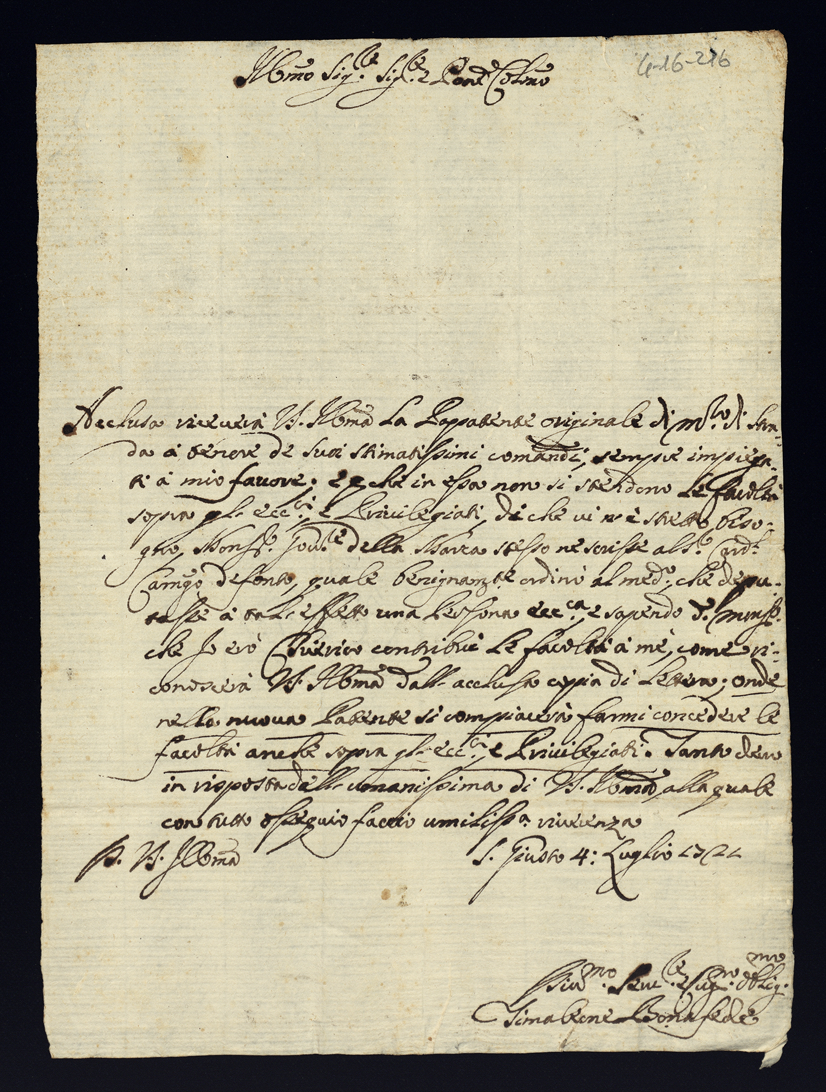 4-16-216
Illmo Sig.re Sig.re e Padr.e Colmo
Acclusa riceverà V.S. Illma La Pattente originale di m.ro di Stra-
da à tenore de suoi stimatissimi comandi, sempre impiega-
ti à mio favore; e p che in essa non si stendono Le facoltà
sopra gl'ecc.ti e Privilegiati, di che vi n'è stretto biso-
gno, Mons.r Gov.re della Marca stesso ne scrisse al S.r Card.l
defonto, quale benignamte ordinò al med.o che depu-
tasse à tal effetto una Persona ecc.ca, e sapendo d.o Mons.r
che Io ero Chierico contribuì Le facoltà à me, come ri-
conoscerà V.S. Illma dall'acclusa copia di Lettera; onde
nella nuova Patente si compiacerà farmi concedere le
facoltà anche sopra gl'ecc.ci e Privilegiati. Tanto devo
in risposta dell'umanissima di V.S. Illma, alla quale
con tutto ossequio faccio umiliss.a riverenza
D. V.S. Illma S. Giusto 4: Luglio 1721
mo Ser.re obblig.mo
Bonafede